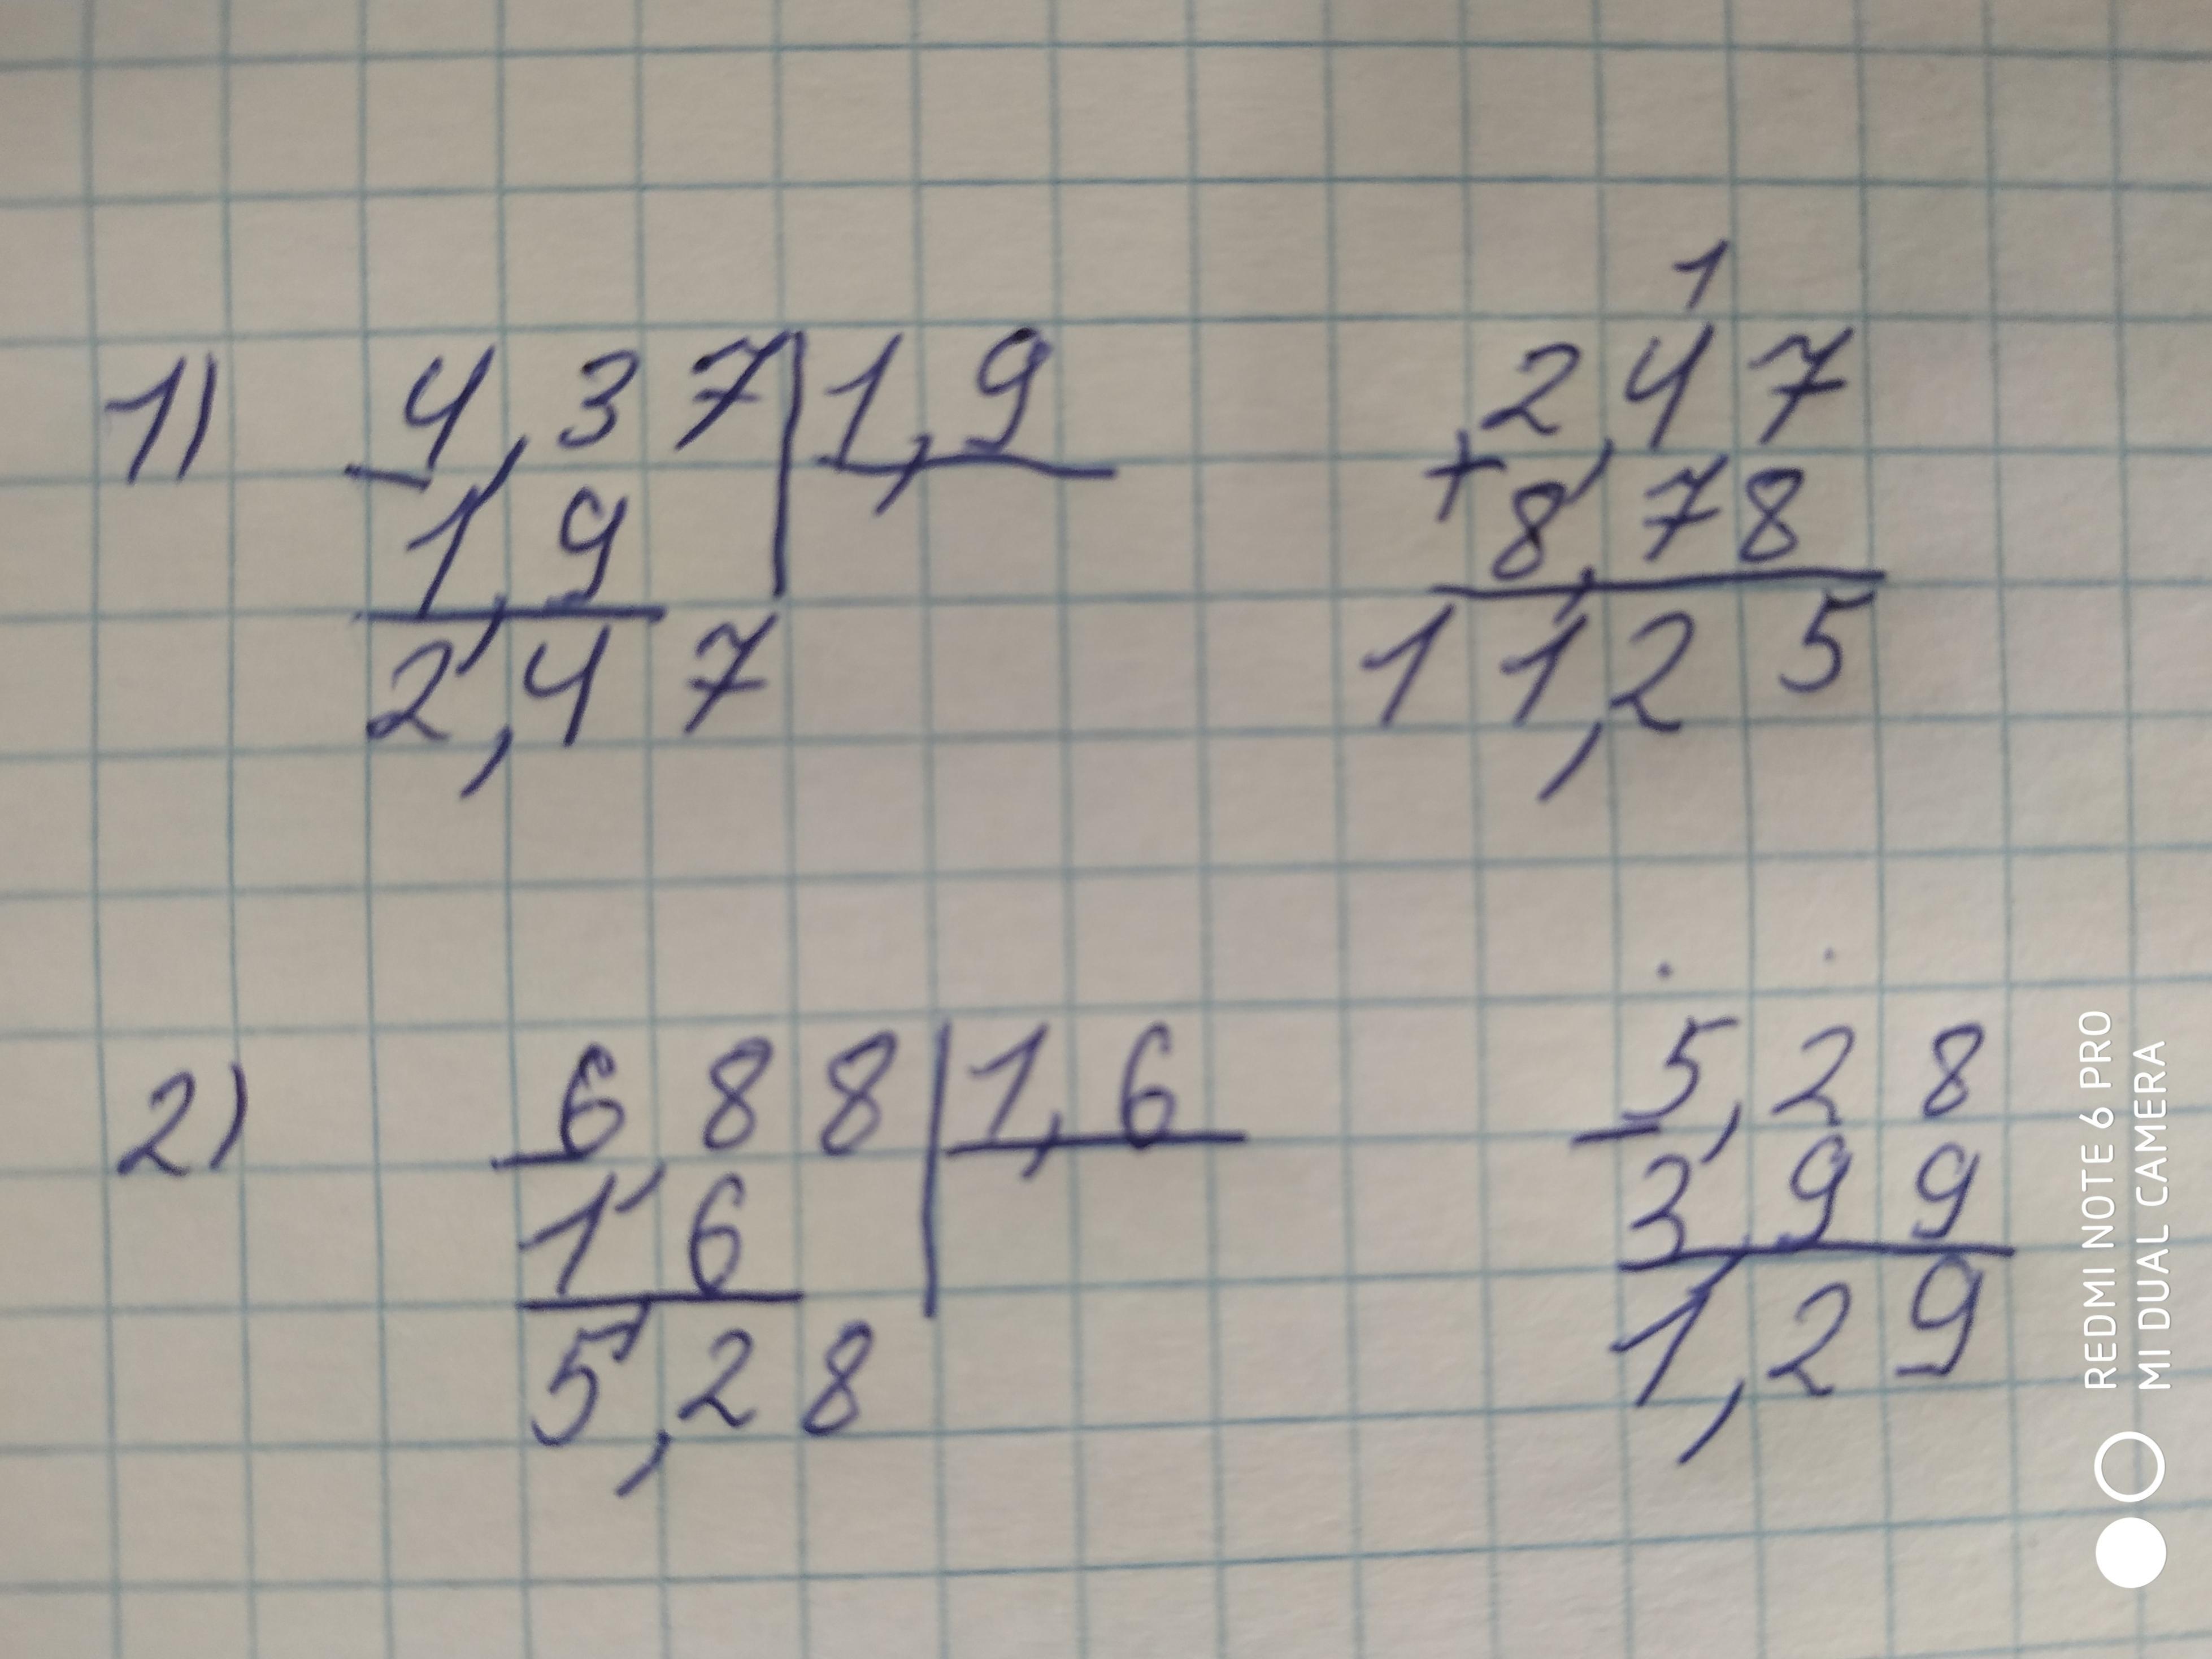 1) 4,37 | 1,9
1,9
2,47
1
2,47
+ 8,78
11,25
2) 6,88 | 1,6
1,6
5,28
5,28
- 3,99
1,29
REDMI NOTE 6 PRO
MI DUAL CAMERA